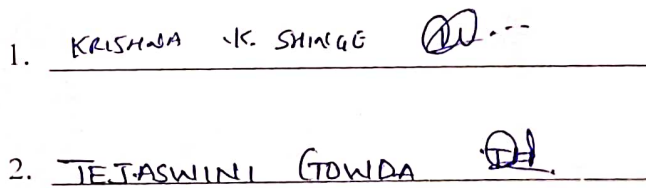 1. KRISHNA K. SHINGE
2. TEJASWINI GOWDA